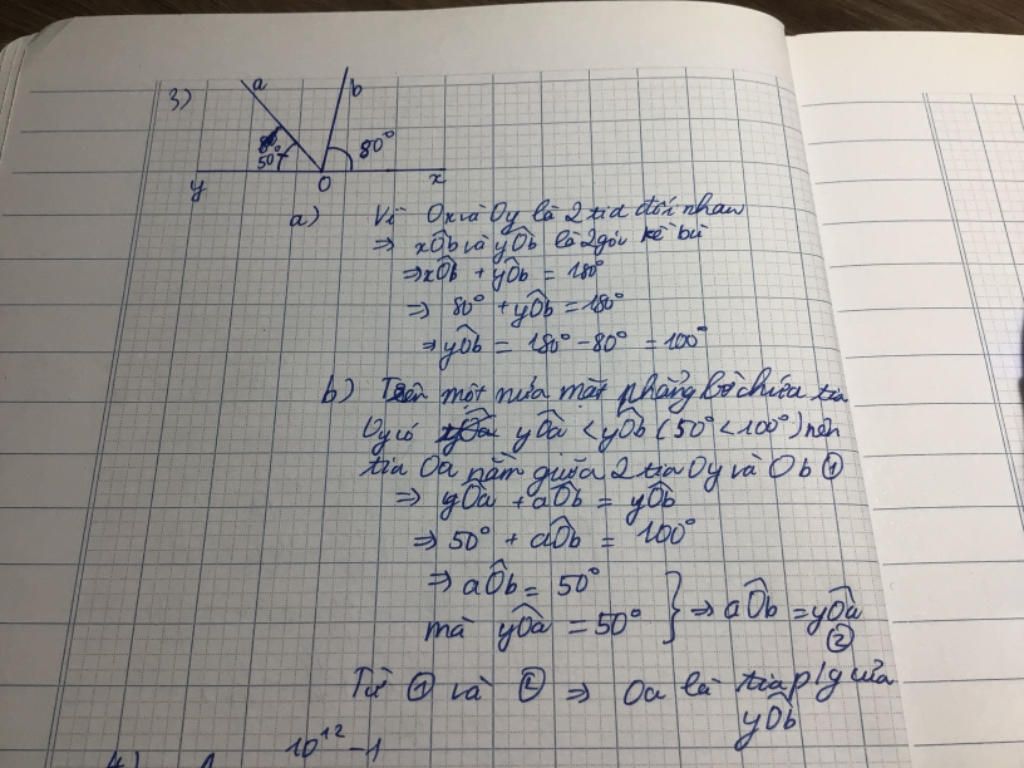 3)
a
b
50°
80°
y
O
x
a) Vì Ox và Oy là 2 tia đối nhau
⇒ xÔb và yÔb là 2 góc kề bù
⇒ xÔb + yÔb = 180°
⇒ 80° + yÔb = 180°
⇒ yÔb = 180° - 80° = 100°
b) Trên một nửa mặt phẳng bờ chứa tia
Oy có yÔa < yÔb (50° < 100°) nên
tia Oa nằm giữa 2 tia Oy và Ob ①
⇒ yÔa + aÔb = yÔb
⇒ 50° + aÔb = 100°
⇒ aÔb = 50°
mà yÔa = 50° } ⇒ aÔb = yÔa
②
Từ ① và ② ⇒ Oa là tia p/g của
yÔb
4)
10¹² - 1